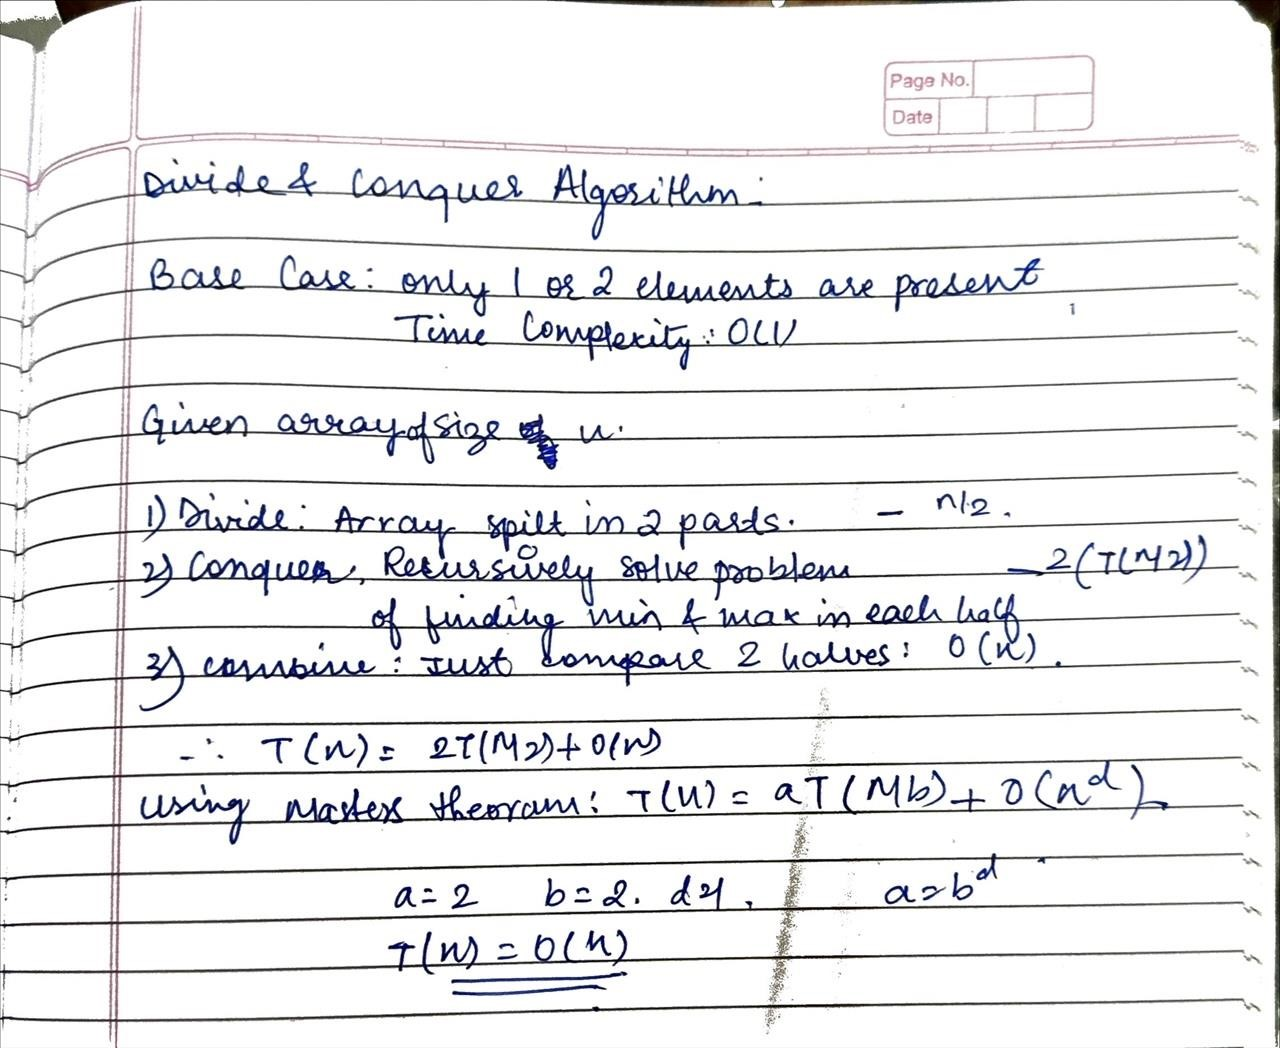 Page No.
Date
Divide & Conquer Algorithm :
Base Case : only 1 or 2 elements are present
Time Complexity : O(1)
Given array of size n.
1) Divide : Array spilt in 2 parts. - n/2.
2) Conquer, Recursively solve problem - 2(T(n/2))
of finding min & max in each half
3) combine : Just compare 2 halves : O(n).
∴ T(n) = 2T(n/2) + O(n)
using masters theoram : T(n) = aT(n/b) + O(n^d)
a = 2 b = 2. d = 1. a = b^d
T(n) = O(n)